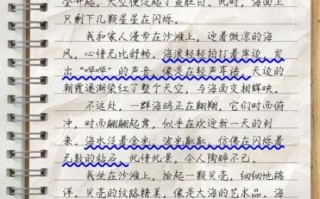 垒开起，天空便泛起了鱼肚白。此时，海面上
只剩下几颗星星在闪烁。
我和家人漫步在沙滩上，迎着微凉的海
风，心情无比舒畅。海浪轻轻拍打着岸边，发
出“哗哗”的声音，像是在轻声耳语。天边的
朝霞逐渐染红了整个天空，与海面交相辉映。
不远处，一群海鸥正在翱翔，它们时而俯
冲，时而翩翩起舞，似乎在欢迎新一天的到
来。海水泛着金光，波光粼粼，仿佛在闪烁着
无数的钻石。此情此景，令人陶醉不已。
我坐在沙滩上，捡起一颗贝壳，细细地端
详。贝壳的纹路精美，像是大海的艺术品。海